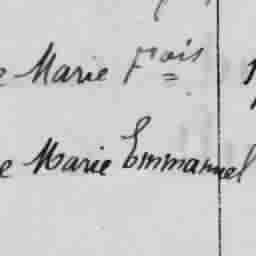 e Marie Fçois
e Marie Emmanuel